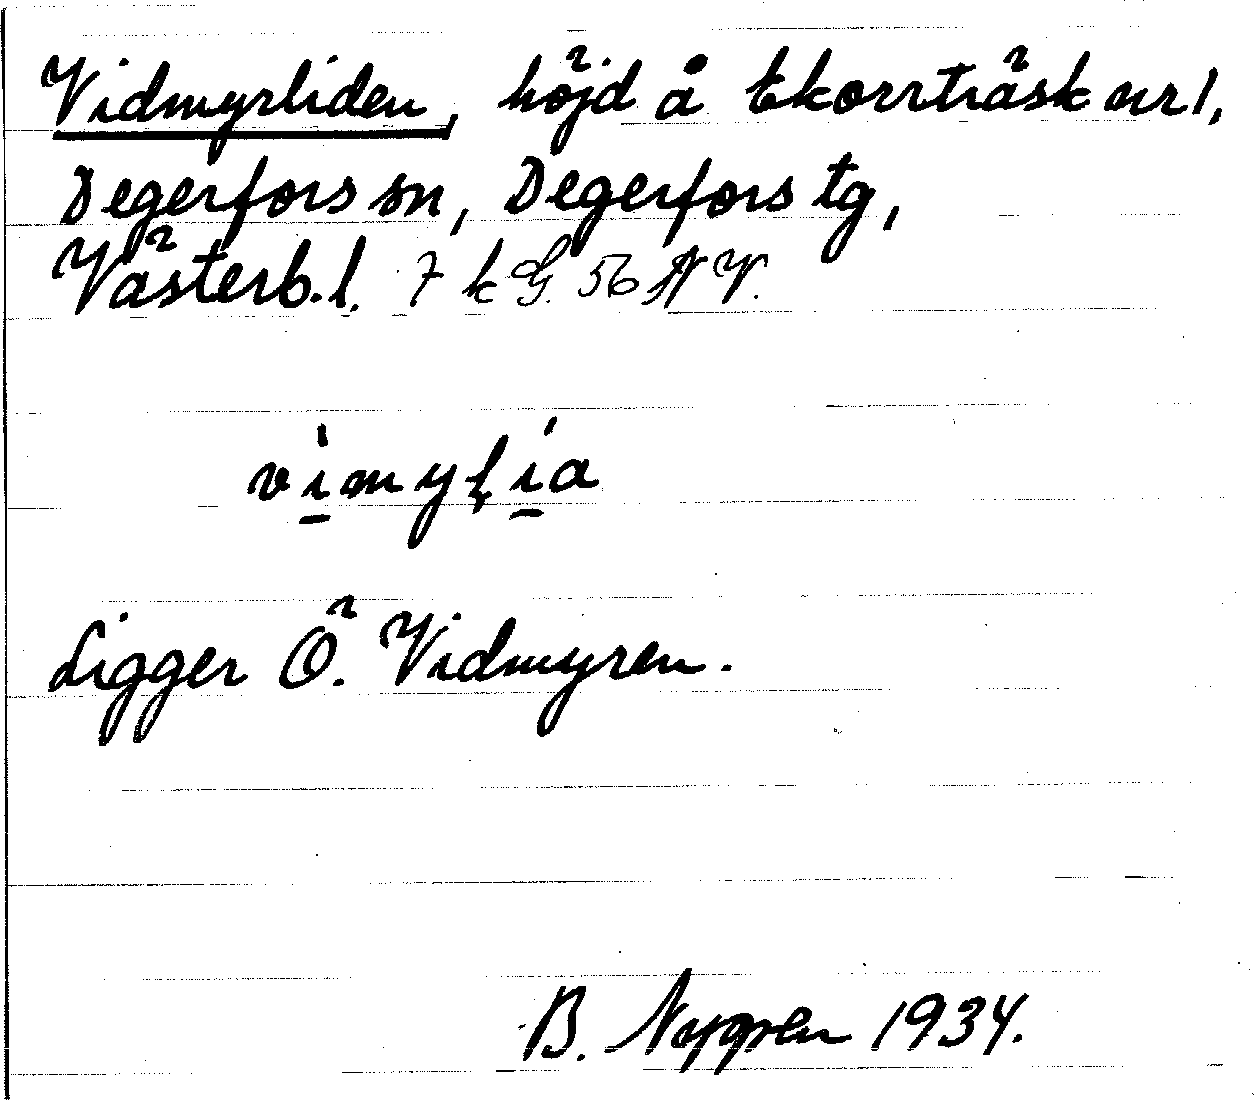 Vidmyrliden, höjd å Ekorrträsk nr 1,
Degerfors sn, Degerfors tg,
Västerb. l. 7 k G. 56 N V.
vi̱myli̱a
Ligger Ö. Vidmyren.
B. Nygren 1934.